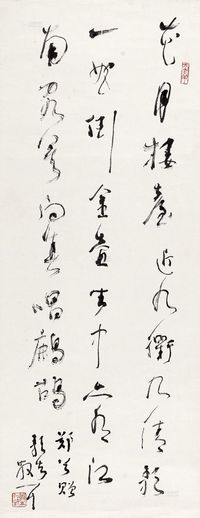 花月樓臺近九衢清歌
一曲倒金壺坐中亦有江
南客莫向春唱鷓鴣
鄭谷贈
歌者
散耳